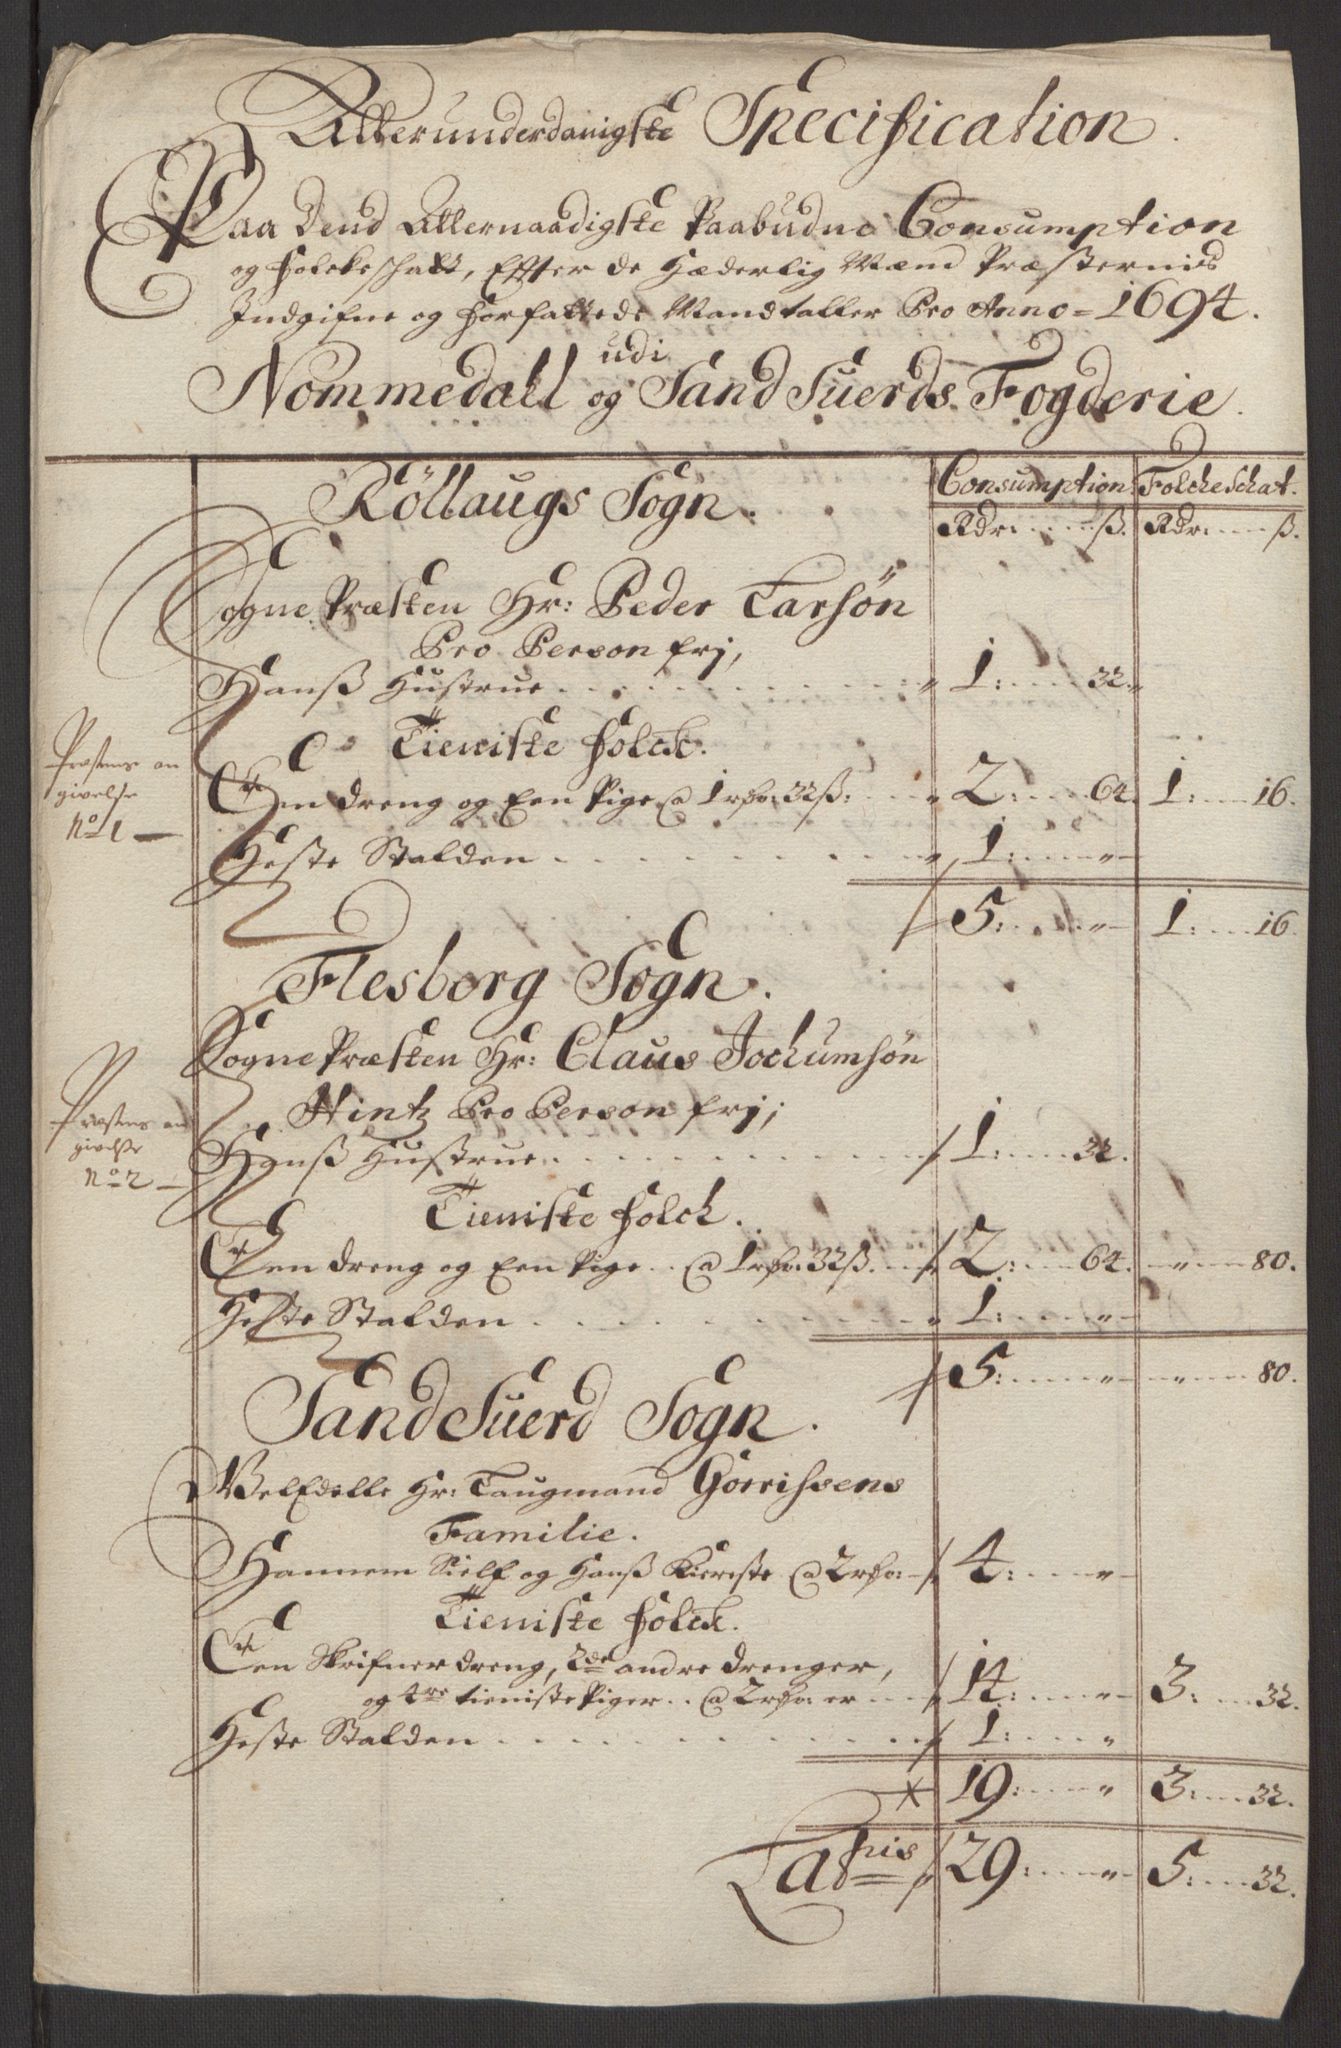 Allerunderdanigste Specification.
Paa Dend Allernaadigste Paabudne Consumption
og Folckeschatt, Effter de Hæderlig Mænd Præsternis
Indgifne og forfattede Mandtaller Pro Anno = 1694.
udi
Nommedall og Sand Suerds Fogderie.
Consumption Folckeschat.
Röllaugs Sogn.
Rdr: ß. Rdr: ß.
Sogne Præsten Hr: Peder Larsön
Pro Person frj,
Hanß Hustrue 1: 32
Tieniste folck.
Præstens an
givelse
No 1
Een dreng og Een Pige @ 1 rdr 32 ß: 2: 64. 1: 16.
Heste Stalden 1: "
5: " 1: 16.
Flesborg Sogn.
Sogne Præsten Hr: Claus Jochumsön
Hintz Pro Person frj;
Præstens an
givelse
No 2
Hanß Hustrue 1: 32.
Tieniste folck.
Een dreng og Een Pige @ 1 rdr 32 ß. 2: 64. " 80.
Heste Stalden 1: "
5: " " 80.
Sand Suerd Sogn.
VelEdelle Hr: Laugmand Görrissens
Familie.
Hannem Sielf og Hanß Kiereste @ 2 rdr: 4: "
Tieniste folck.
Een Skrifverdreng, 2de andre drenger,
og 4re tieniste Piger @ 2 rdr: er 14: " 3: 32.
Heste Stalden 1: "
19: " 3: 32.
Lateris 29: " 5: 32.